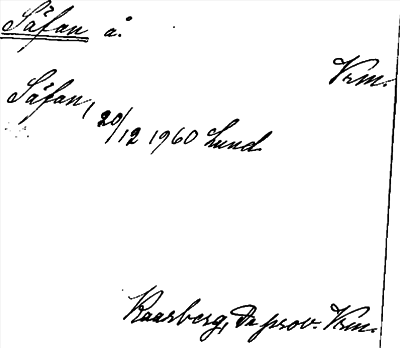 Säfan å.
Vrm.
Säfan,
20/12 1960 Lund
Kaarsberg, Da prov. Vrm.